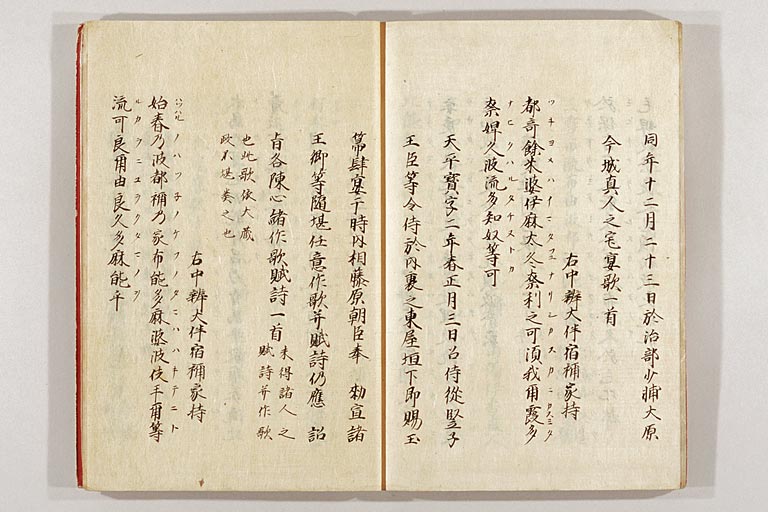 同年十二月二十三日於治部少輔大原
今城真人之宅宴歌一首
右中辨大伴宿祢家持
ツキヨメハイマタフユナリシカスカニカスミタ
都奇餘米婆伊麻太冬奈利之可須我尓霞多
ナヒクハルタチヌトカ
奈婢久波流多知奴等可
天平寶字二年春正月三日召侍從竪子
王臣等令侍於内裏之東屋垣下即賜玉
箒肆宴于時内相藤原朝臣奉 勅宣諸
王卿等隨堪任意作歌并賦詩仍應 詔
旨各陳心緒作歌賦詩一首
未得諸人之
賦詩并作歌
也此歌依大蔵
政不堪奏之也
右中辨大伴宿祢家持
ハツハルノハツネノケフノタマハハキテニト
始春乃波都祢乃家布能多麻婆波伎手尓等
ルカラニユラクタマノヲ
流可良尓由良久多麻能乎